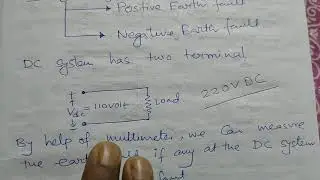 Positive Earth fault
Negative Earth fault
DC system has two terminal
+
Vdc = 110volt
Load
-
220V DC
By help of multimeter, we can measure
the if any at the DC system